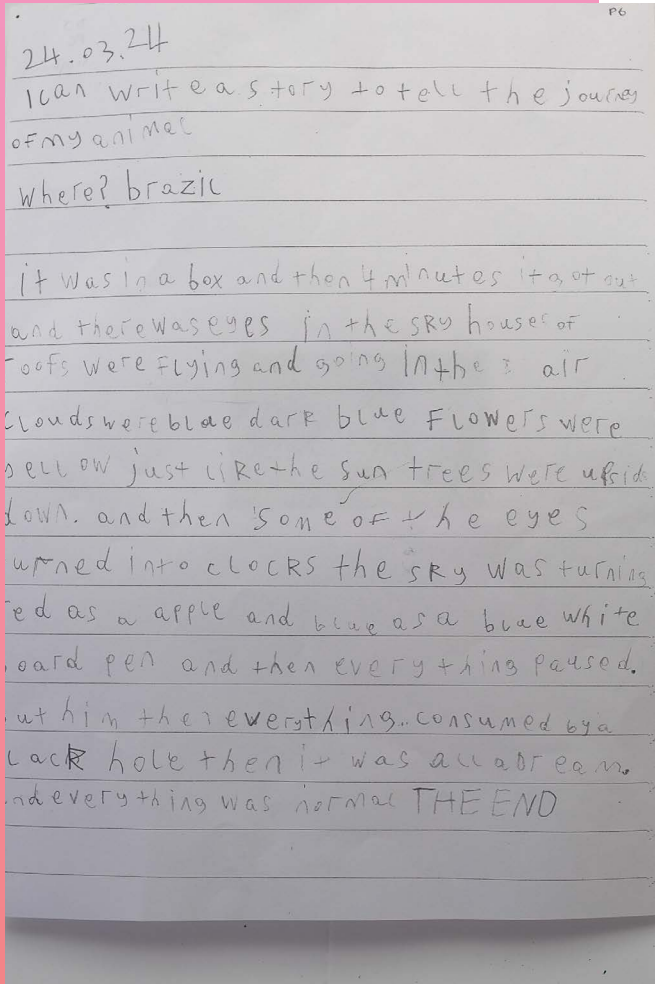 P6
24.03.24
I can write a story to tell the journey
of my animal
Where? brazil
it was in a box and then 4 minutes it got out
and there was eyes in the sky houses of
roofs were flying and going in the air
clouds were blue dark blue flowers were
yellow just like the sun trees were upsid
down. and then some of the eyes
urned into clocks the sky was turning
ed as a apple and blue as a blue white
oard pen and then everything paused.
ut him then everything.. consumed by a
lack hole then it was all a dream.
nd everything was normal THE END